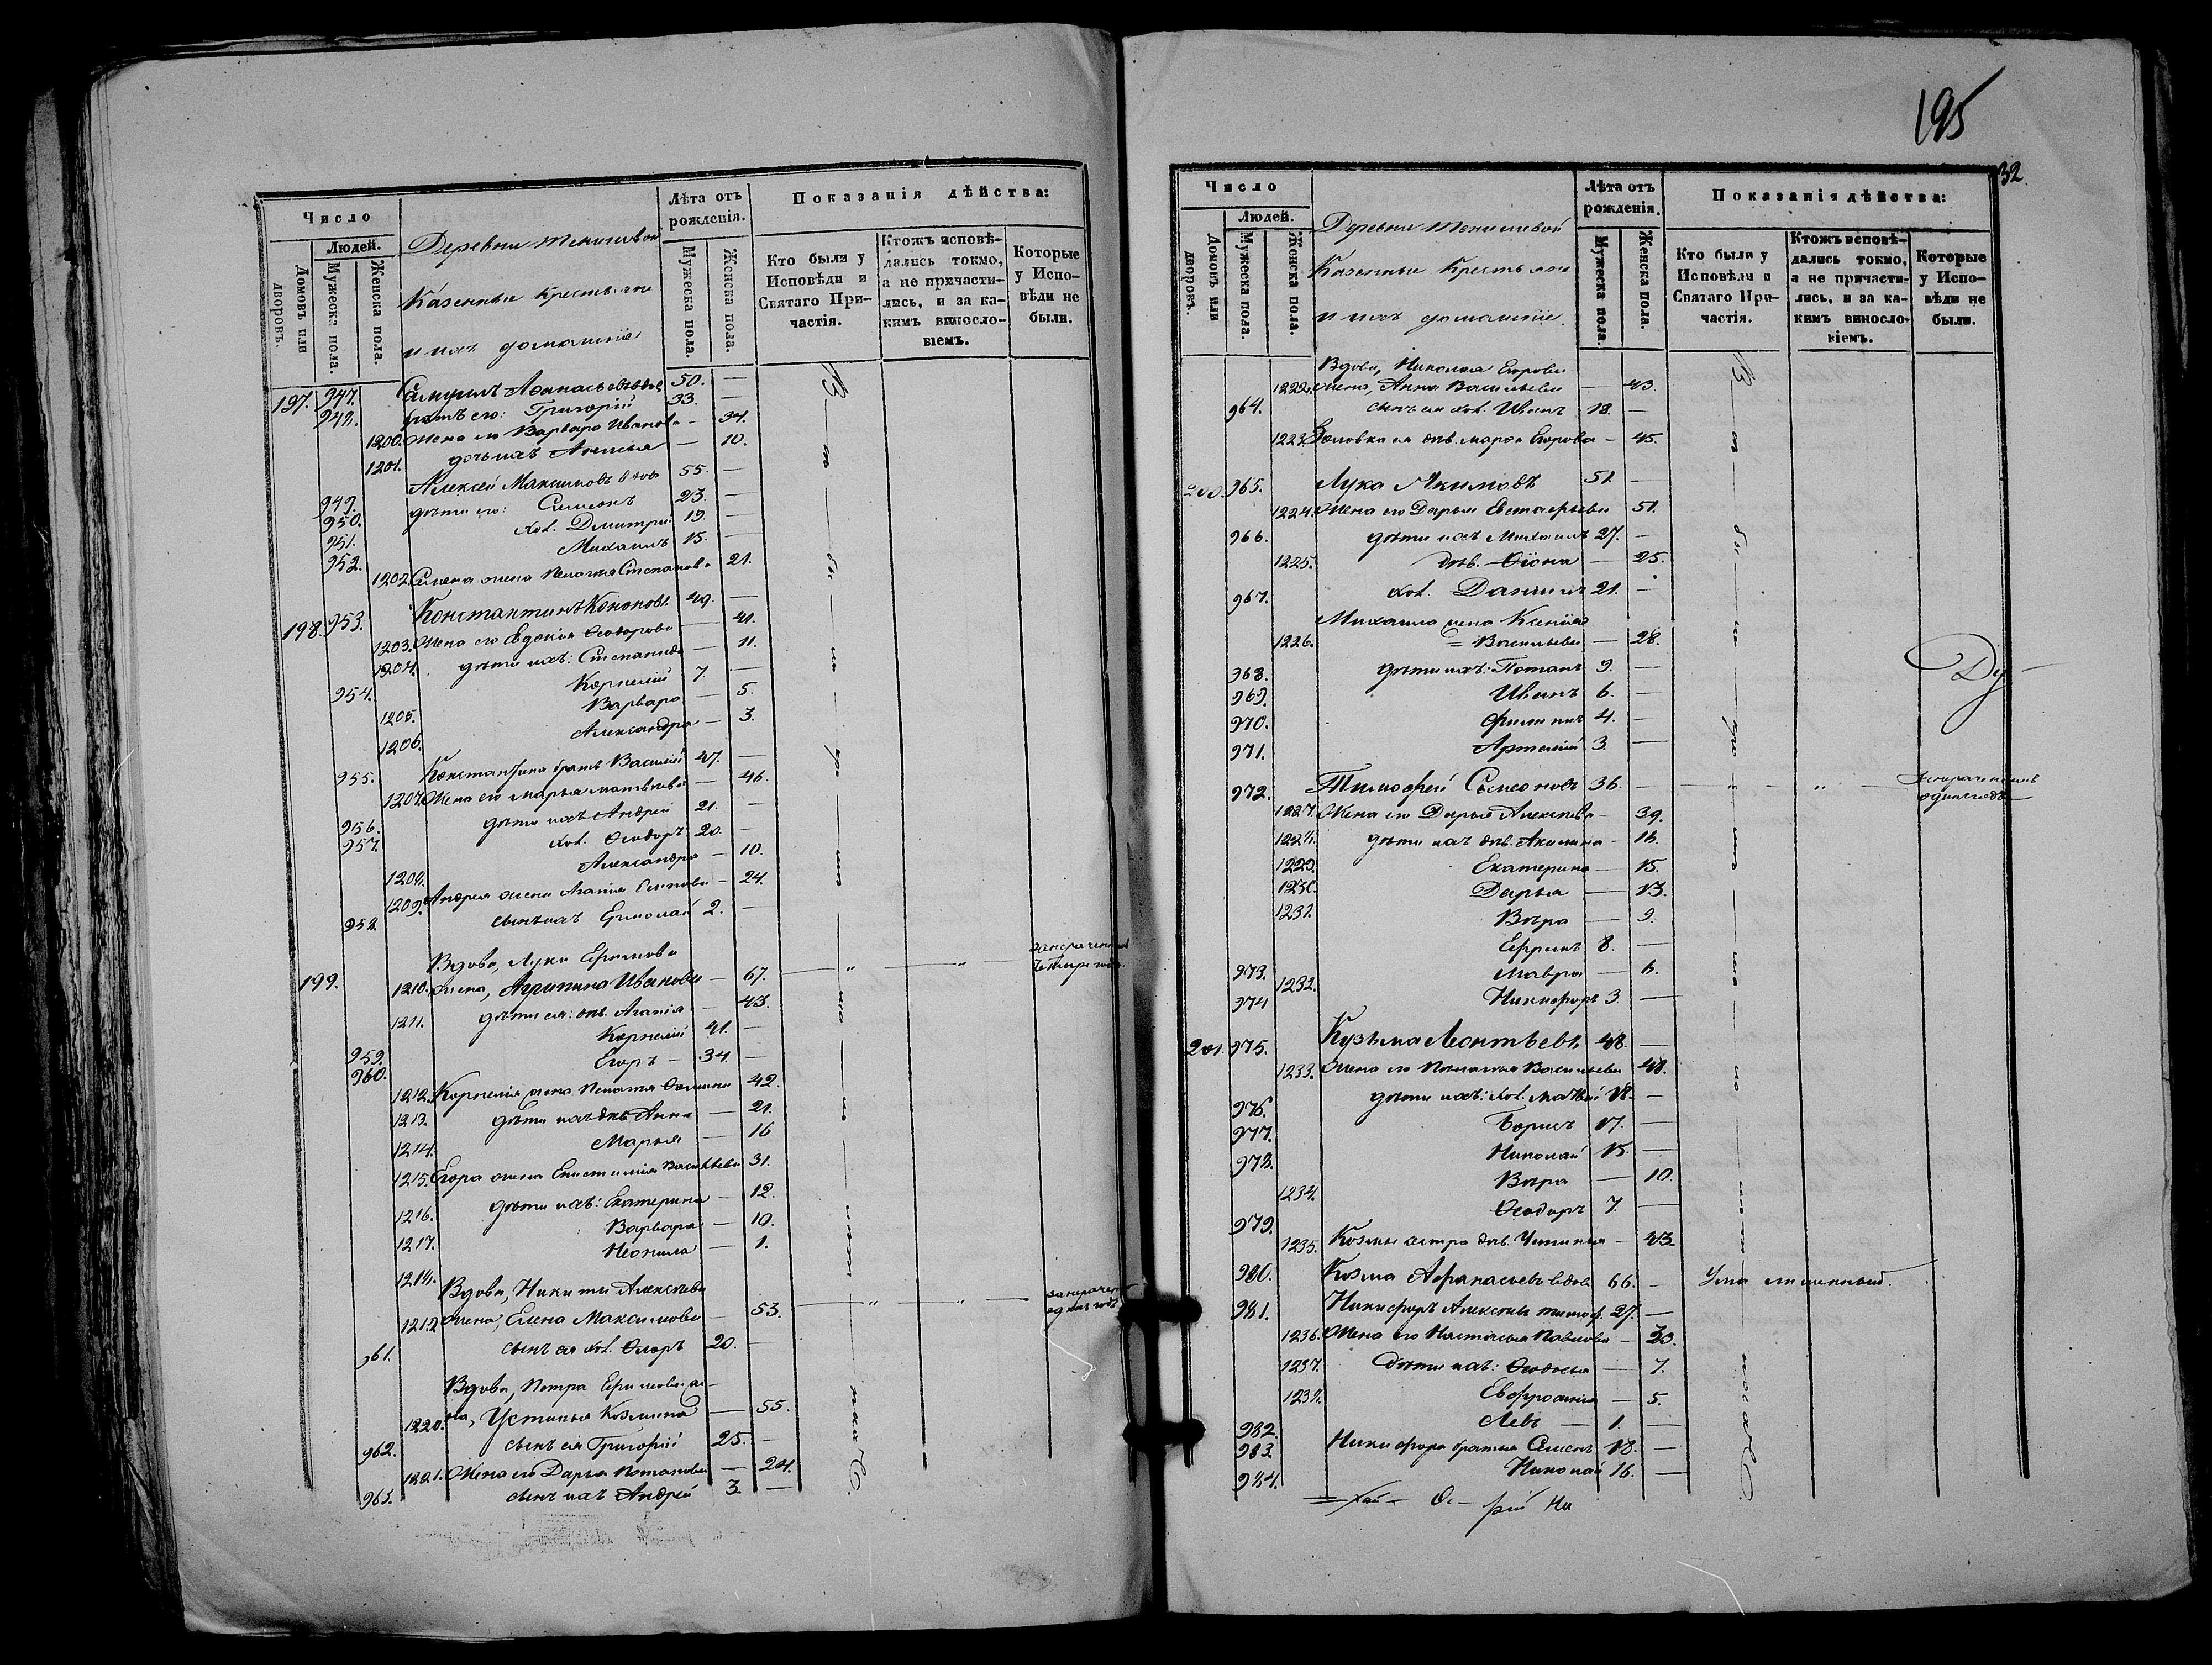 Число
Людей.
Домовъ или дворовъ.
Мужеска пола.
Женска пола.
Деревни
Казенные крестьяне
и ихъ домашніе
Лѣта отъ рожденія.
Мужеска пола.
Женска пола.
Показанія дѣйства:
Кто были у Исповѣди и Святаго Причастія.
Ктожъ исповѣдались токмо, а не причастились, и за какимъ винословіемъ.
Которые у Исповѣди не были.
197. 947. Самуилъ Афанасьевъ вдов 50. —
948. братъ его: Григорій 33. —
1200. Жена его Варвара Иванова — 34.
1201. дочь ихъ — 10.
949. Алексѣй Максимовъ вдов 55. —
950. дѣти его: Симеонъ 23. —
951. хол. Димитрій 19. —
952. Михаилъ 15. —
1202. Семена жена Пелагія Степанова 21.
198. 953. Константинъ Кононовъ 49. —
1203. Жена его Евдокія Ѳеодорова — 41.
1204. дѣти ихъ: Степанида — 11.
954. Корнелій 7. —
1205. Варвара — 5.
1206. Александра — 3.
955. Константина братъ Василій 47. —
1207. Жена его Марья Матвѣева — 46.
956. дѣти ихъ Андрей 21. —
957. хол. Ѳеодоръ 20. —
1208. Александра — 10.
1209. Андрея жена Агапія — 24.
958. сынъ ихъ Ермолай 2. —
Вдова, Луки Ефимова
199. 1210. жена, Агрипина Иванова — 67. — " — " — за нерачен четыре года.
1211. дѣти ея: дѣв. Агапія — 43.
959. Корнелій 41. —
960. Егоръ — 34. —
1212. Корнелія жена Пелагія 42.
1213. дѣти ихъ дѣв. Анна — 21.
1214. Марья — 16
1215. Егора жена Епистимія Васильева 31.
1216. дѣти ихъ: Екатерина — 12.
1217. Варвара — 10.
1218. Неонила — 1.
Вдова, Никиты Алексѣева
1219. жена, Елена Максимова — 53. — " — " — за нерачен одинъ годъ
961. сынъ ея хол. Флоръ 20. —
Вдова, Петра Ефимова же-
1220. на, Устинья Козмина — 55.
962. сынъ ея Григорій 25. —
1221. Жена его Дарья Потапова — 24.
963. сынъ ихъ Андрей 3. —
195
32.
Число
Людей.
Домовъ или дворовъ.
Мужеска пола.
Женска пола.
Деревни
Казенные крестьяне
и ихъ домашніе.
Лѣта отъ рожденія.
Мужеска пола.
Женска пола.
Показанія дѣйства:
Кто были у Исповѣди и Святаго Причастія.
Ктожъ исповѣдались токмо, а не причастились, и за какимъ винословіемъ.
Которые у Исповѣди не были.
Вдова, Николая Егорова
1222. жена, Анна Васильева — 43.
964. сынъ ея хол. Иванъ 18. —
1223. Золовка ея дѣв. Марѳа Егорова — 45.
200. 965. Лука Акимовъ 51. —
1224. Жена его Дарья Евстафьева 51.
966. дѣти ихъ Михаилъ 27. —
1225. дѣв. — 25.
967. хол. Даніилъ 21. —
Михаила жена Ксенія
1226. = Васильева — 28.
968. дѣти ихъ: Потапъ 9. —
969. Иванъ 6. —
970. Филиппъ 4. —
971. Артемій 3. —
972. Тимофей Симеоновъ 36. — " — " — За нерачениемъ одинъ годъ
1227. Жена его Дарья Алексѣева — 39.
1228. дѣти ихъ дѣв. Акилина — 16.
1229. Екатерина — 15.
1230. Дарья — 13.
1231. Вѣра — 9.
973. Ефимъ 8. —
1232. Мавра — 6.
974 Никифоръ 3. —
201. 975. Кузьма Леонтьевъ 48. —
1233. Жена его Пелагія Васильева 48.
976. дѣти ихъ: хол. Матвѣй 18. —
977. Борисъ 17. —
978. Николай 15. —
1234. Вѣра — 10.
979. Ѳеодоръ 7. —
1235. Козмы сестра дѣв. Устинья — 43.
980. Козма Афанасьевъ вдов 66. — Ума лишенный.
981. Никифоръ Алексѣевъ 27. —
1236. Жена его Настасья Павлова — 30.
1237. Дѣти ихъ: Ѳеодосья — 7.
1238. Евфросинія — 5.
982. Левъ — 1. —
983. Никифора братья Семенъ 18. —
984. Николай 16. —